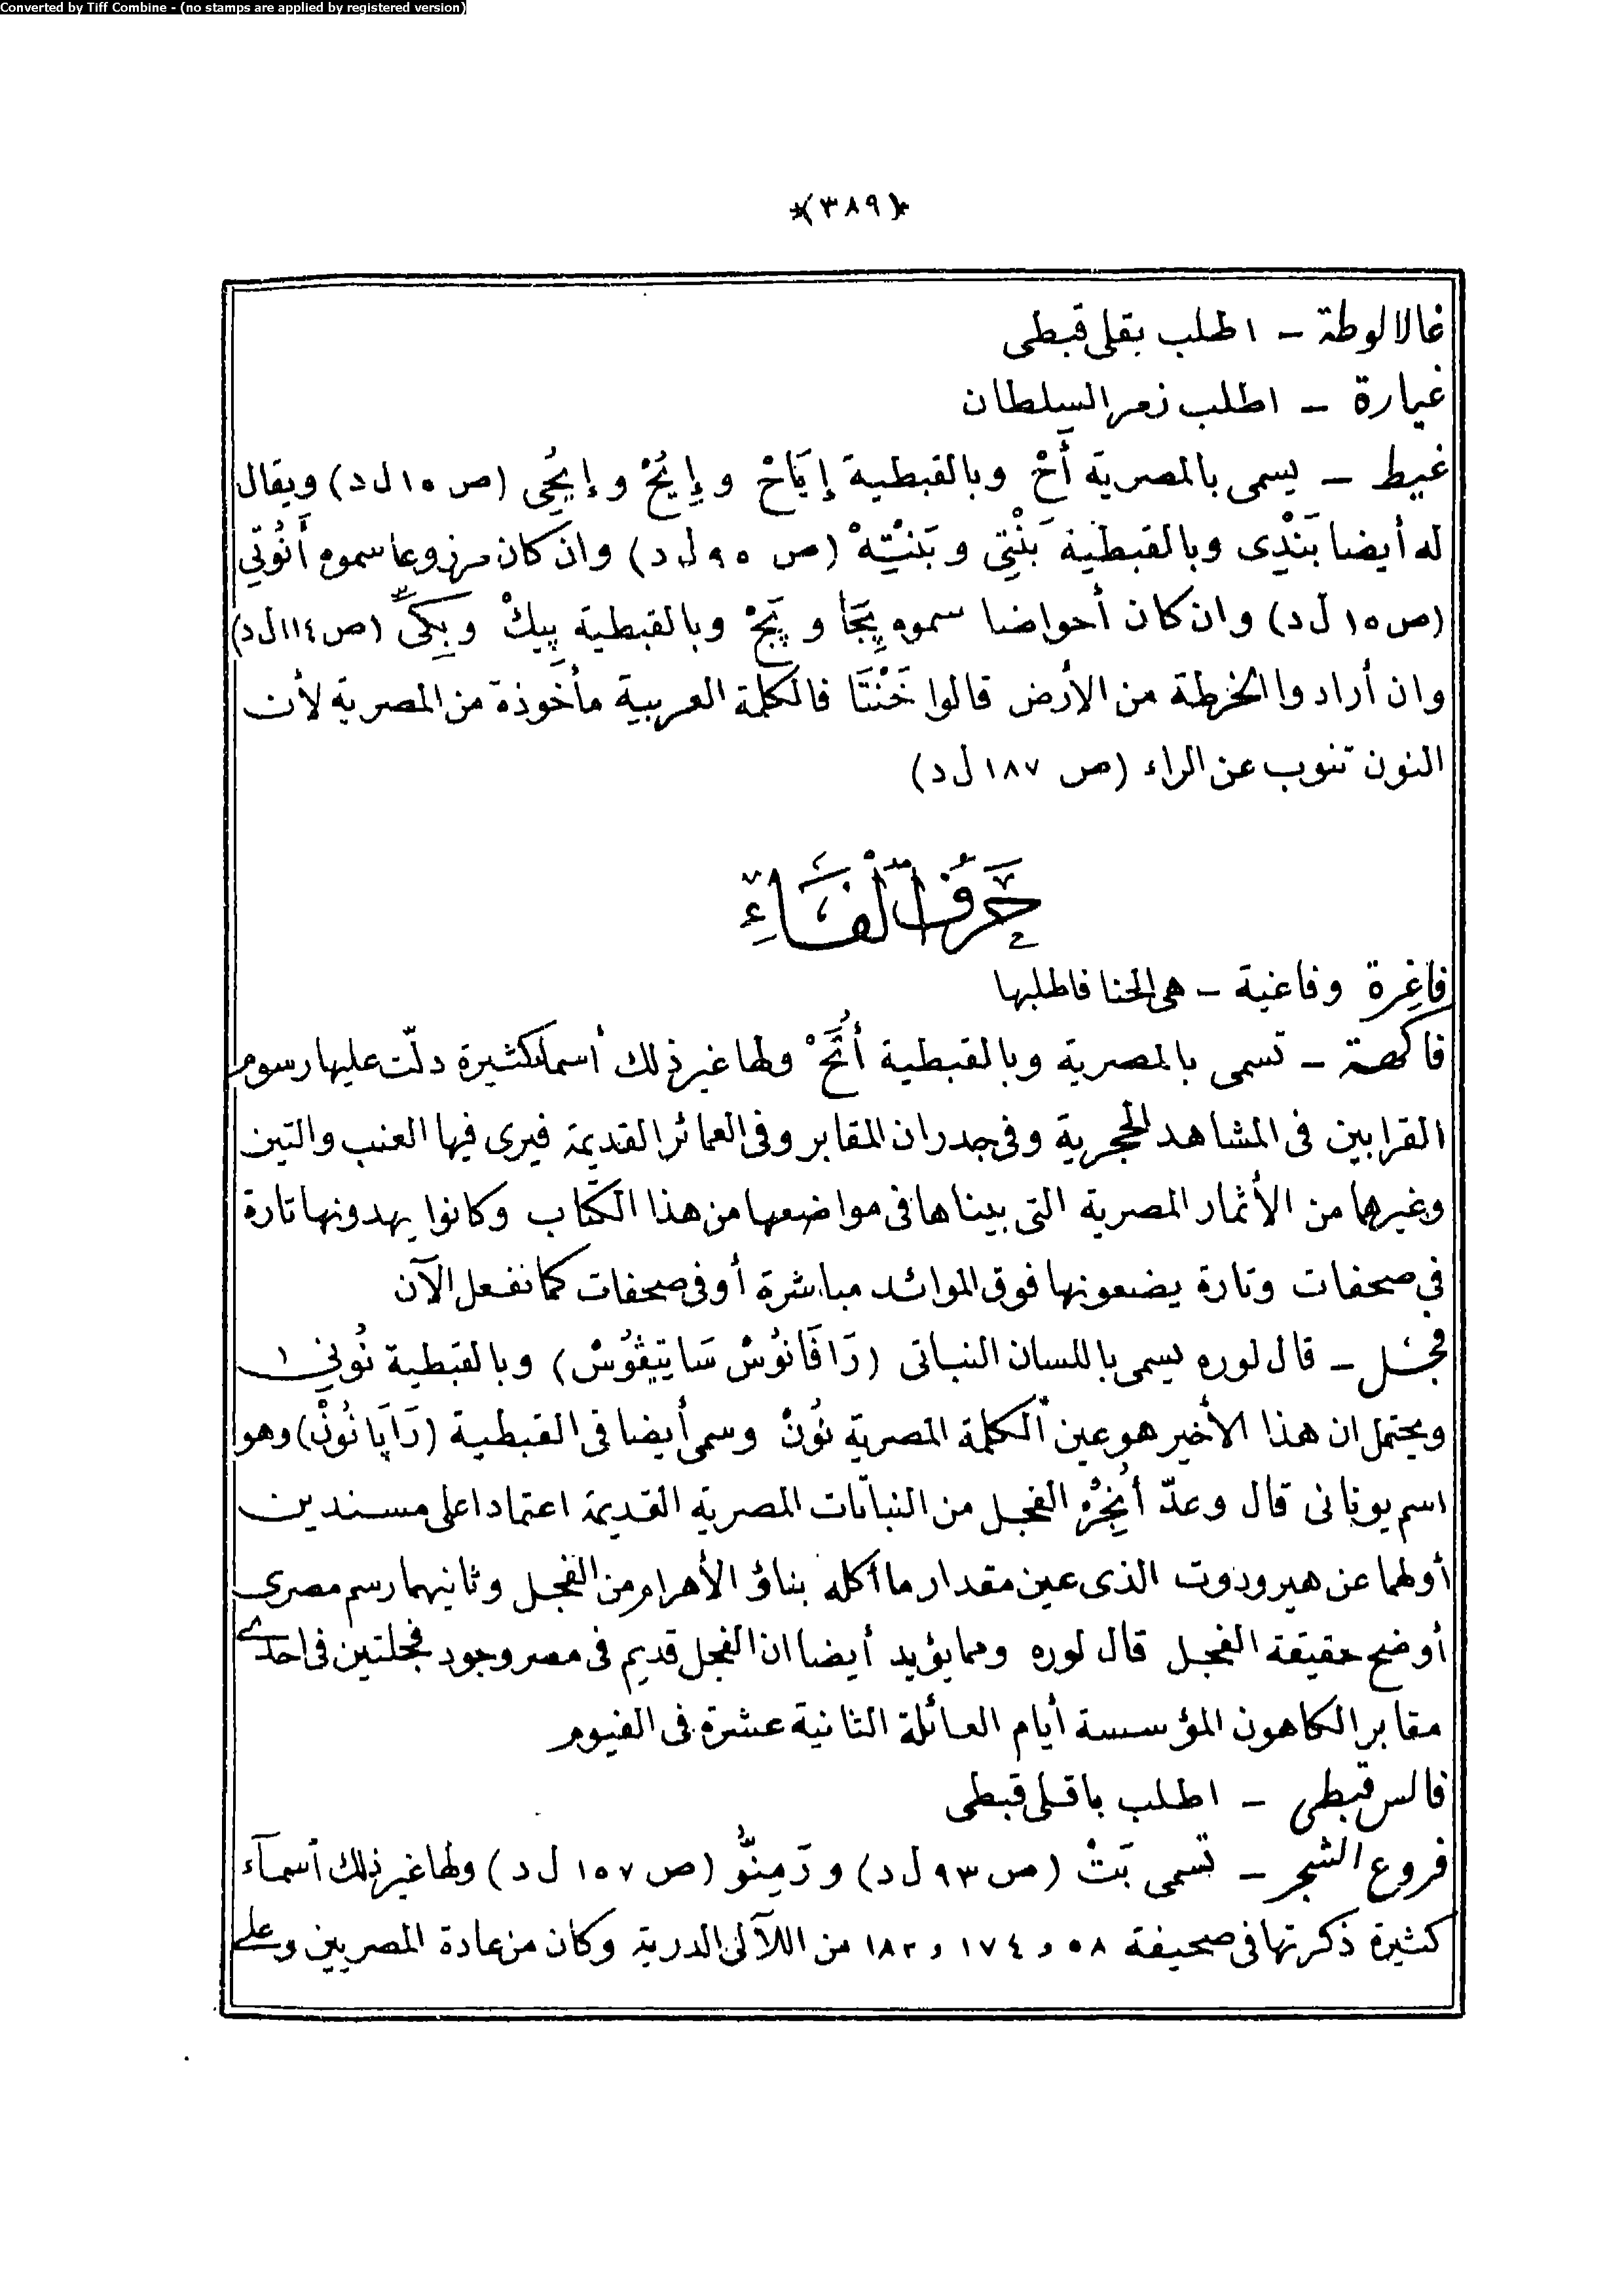 Converted by Tiff Combine - (no stamps are applied by registered version)
*(٣٨٩)*
غالالوطة ــ اطلب بقلى قبطى
غيارة ــ اطلب زمر السلطان
غيط ــ يسمى بالمصرية أَحْ وبالقبطية إيَاحْ و إِيُحْ و إيُحِى (ص ١٥ ل د) ويقال
له أيضا بَنْدِى وبالقبطية بَنْتِى و بَنْتِهْ (ص ٩٥ ل د) وان كان مزروعا سموه أَنُوتِى
(ص ١٥ ل د) وان كان أحواضا سموه پِجَا و پَجْ وبالقبطية پِيكْ و بِكَى (ص ١١٤ ل د)
وان أرادوا الخرطة من الأرض قالوا خَنْتَا فالكلمة العربية مأخوذة من المصرية لأن
النون تنوب عن الراء (ص ١٨٧ ل د)
حَرفُ الْفَاءِ
فاغِرة وفاغية ــ هى الحنا فاطلبها
فاكهة ــ تسمى بالمصرية وبالقبطية أُتَحْ ولها غير ذلك أسماء كثيرة دلّت عليها رسوم
القرابين فى المشاهد الحجرية وفى جدران المقابر وفى العمائر القديمة فيرى فيها العنب والتين
وغيرهما من الأثمار المصرية التى بيناها فى مواضعها من هذا الكتاب وكانوا يهدونها تارة
فى صحفات وتارة يضعونها فوق الموائد مباشرة أو فى صحفات كما نفعل الآن
فجل ــ قال لوره يسمى باللسان النباتى (رَافَانُوسْ سَاتِيڤُوسْ) وبالقبطية نُونِى
ويحتمل ان هذا الأخير هو عين الكلمة المصرية نُونْ وسمى أيضا فى القبطية (رَاپَانُونْ) وهو
اسم يونانى قال وعدّ أُنْجِرْ الفجل من النباتات المصرية القديمة اعتمادا على مسندين
أولهما عن هيرودوت الذى عين مقدار ما أكله بناؤ الأهرام من الفجل وثانيهما رسم مصرى
أوضح حقيقة الفجل قال لوره ومما يؤيد أيضا ان الفجل قديم فى مصر وجود فجلتين فى احدى
مقابر الكاهون المؤسسة أيام العائلة الثانية عشرة فى الفيوم
فالس قبطى ــ اطلب باقلى قبطى
فروع الشجر ــ تسمى بَتْ (ص ٩٣ ل د) و رَمِنُّو (ص ١٥٧ ل د) ولها غير ذلك أسمآء
كثيرة ذكرتها فى صحيفة ٥٨ و ١٧٤ و ١٨٢ من اللآلئ الدرية وكان من عادة المصريين وعلى